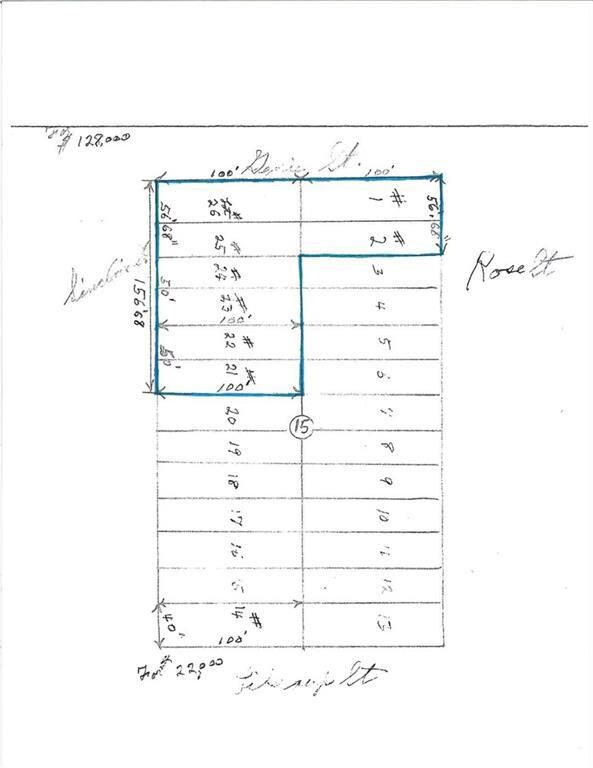 For
$ 128,000
100' St. 100'
# 26
# 1
56' 68"
56' 68"
25 #
2 #
24 #
3
Rose St
50'
23 #
4
156'68
100'
22 #
5
50'
21 #
6
100'
20
7
15
19
8
18
9
17
10
16
11
15
12
14 #
13
40'
100'
For $ 22,000
St